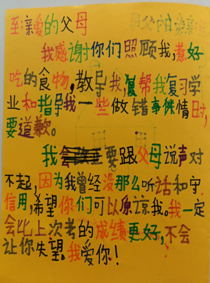 至亲爱的父母
我感谢你们照顾我,煮好
吃的食物,教导我,帮我复习学
业和指导我一些做错事情时,
要道歉。
我要跟父母说声对
不起,因为我曾经没那么听话和守
信用,希望你们可以原谅我。我一定
会比上次考的成绩更好,不会
让你失望。我爱你!